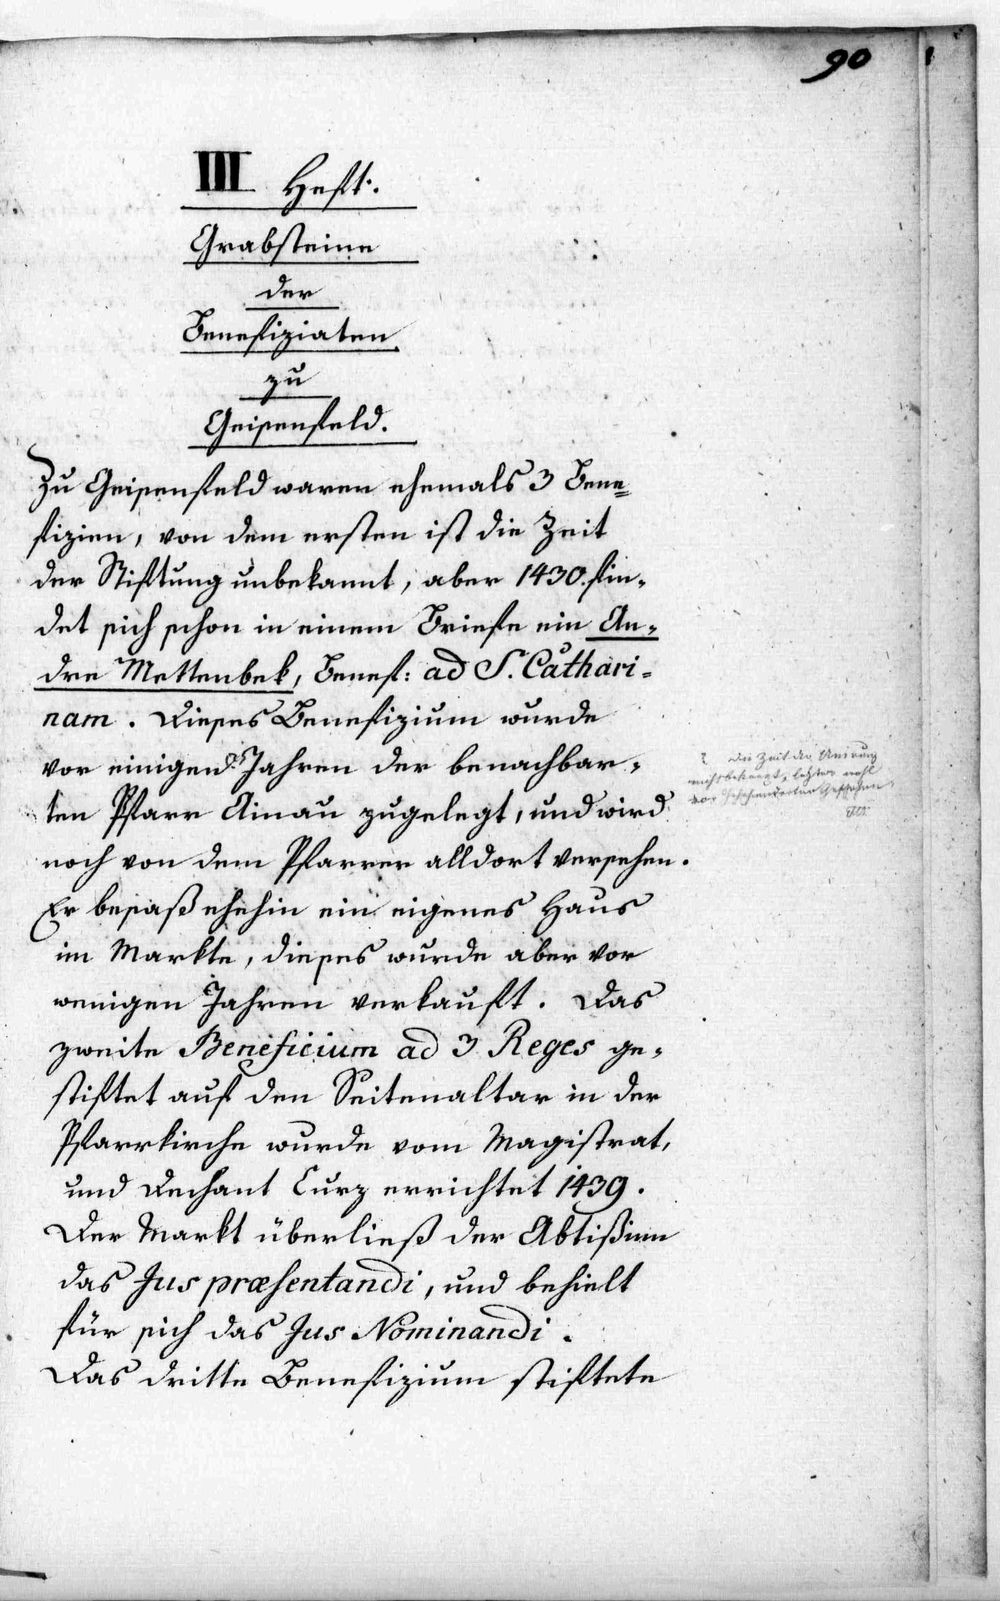 90
III Heft.
Grabsteine
der
Benefiziaten
zu
Geisenfeld.
Zu Geisenfeld waren ehemals 3 Bene=
fizien, von dem ersten ist die Zeit
der Stiftung unbekannt, aber 1430. fin-
det sich schon in einem Briefe ein An-
dre Mettenbek, Benef: ad S. Cathari-
nam. Dieses Benefizium wurde
vor einigen Jahren der benachbar-
ten Pfarr Ainau zugelegt, und wird
noch von dem Pfarrer alldort versehen.
Er besaß ehehin ein eigenes Haus
im Markte, dieses wurde aber vor
wenigen Jahren verkauft. Das
zweite Beneficium ad 3 Reges ge-
stiftet auf den Seitenaltar in der
Pfarrkirche wurde vom Magistrat,
und Dechant Curz errichtet 1439.
Der Markt überließ der Abtißinn
das Jus præsentandi, und behielt
für sich das Jus Nominandi.
Das dritte Benefizium stiftete
? die Zeit der
nicht bekannt, letzter wohl
vor